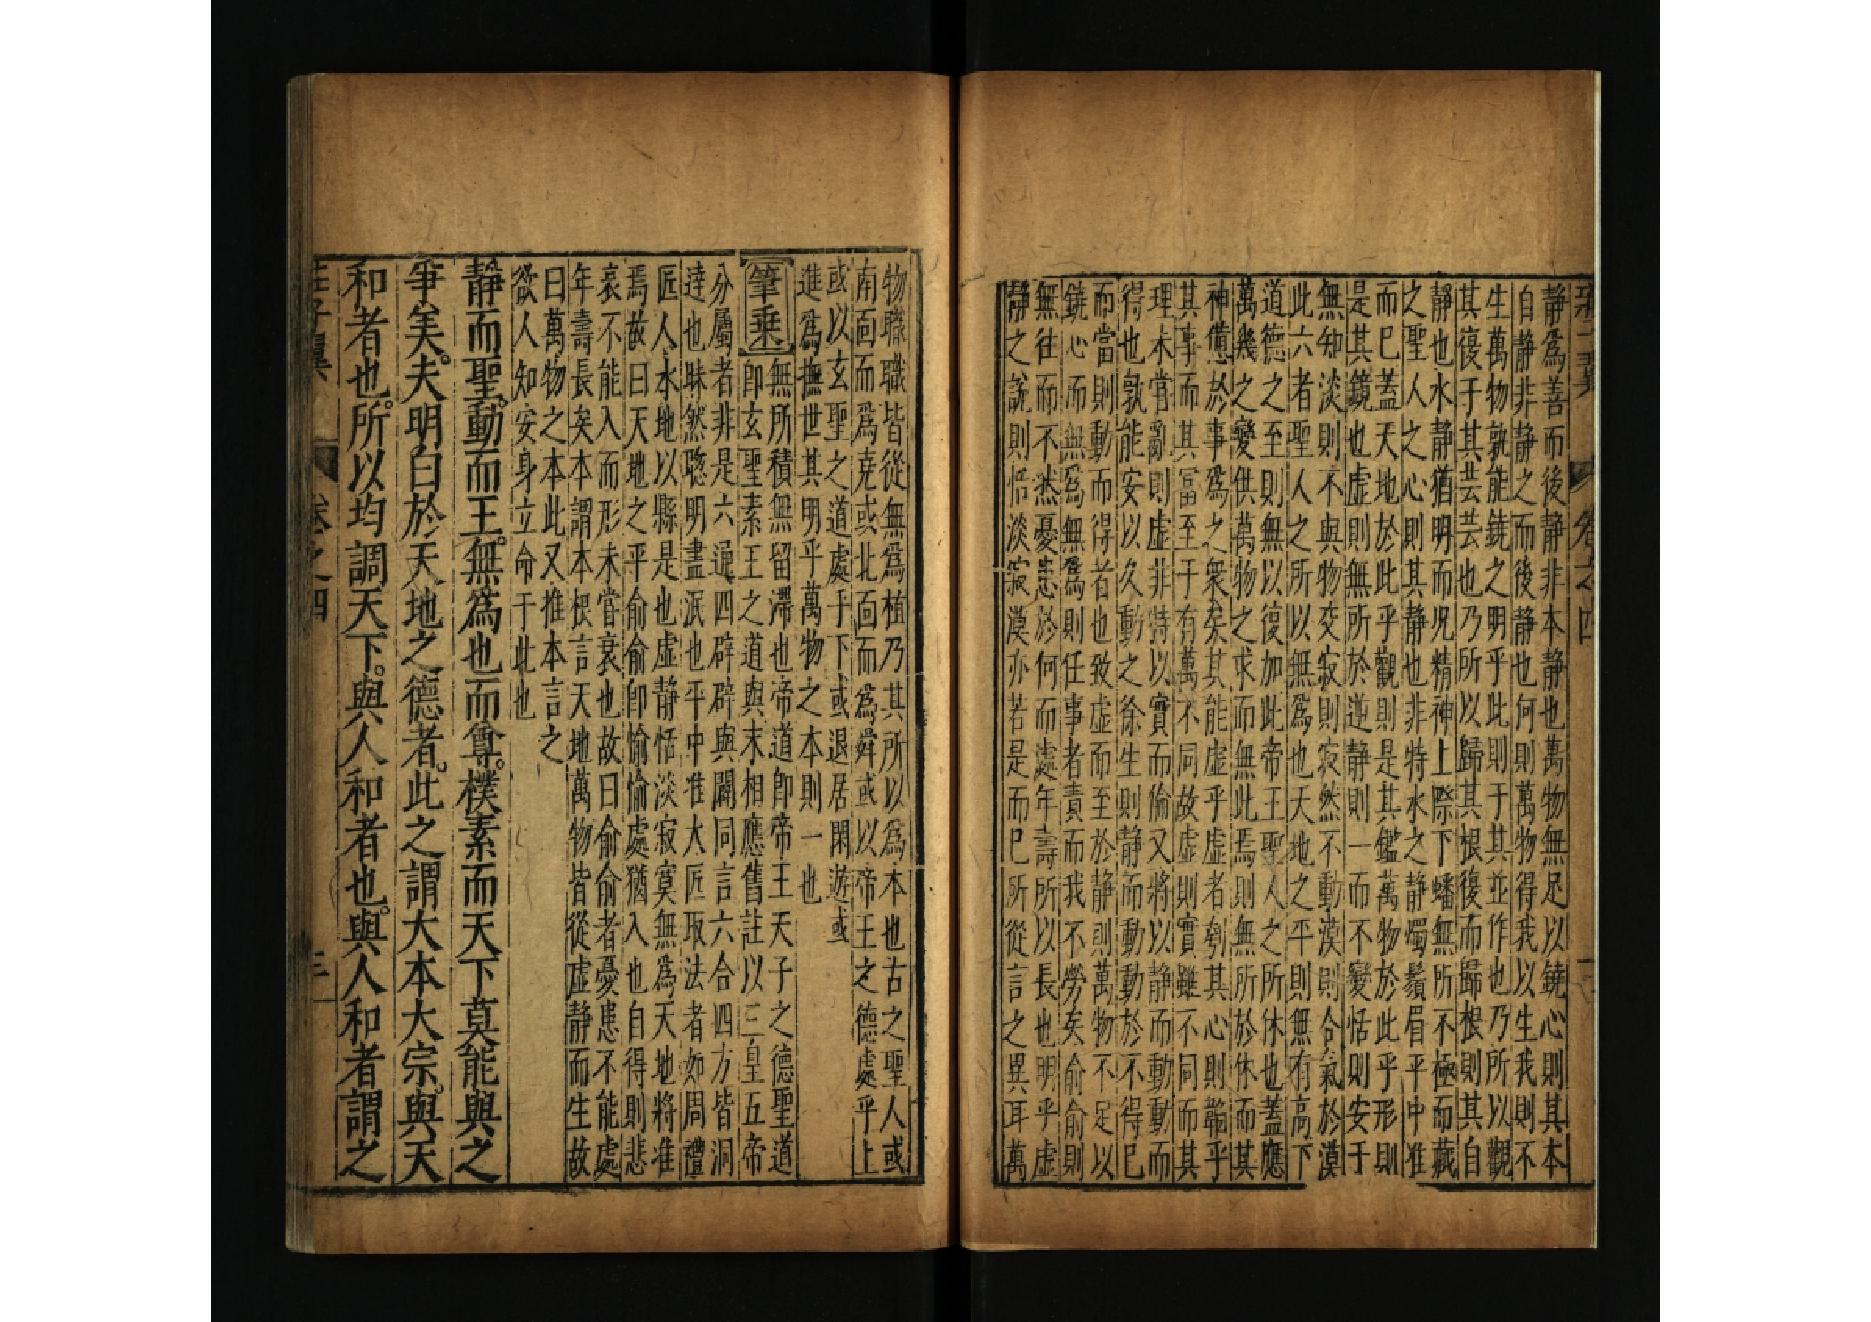 靜爲善而後靜非本靜也萬物無足以鐃心則其本
自靜非靜之而後靜也何則萬物得我以生我則不
生萬物孰能鐃之明乎此則于其並作也乃所以觀
其復于其芸芸也乃所以歸其根復而歸根則其自
靜也水靜猶明而況精神上際下蟠無所不極而藏
之聖人之心則其靜也非特水之靜燭鬚眉平中准
而巳蓋天地於此乎觀則是其鑑萬物於此乎形則
是其鏡也虛則無所於逆靜則一而不變恬則安于
無知淡則不與物交寂則寂然不動漠則合氣於漠
此六者聖人之所以無爲也天地之平則無有高下
道德之至則無以復加此帝王聖人之所休也蓋應
萬幾之變供萬物之求而無此焉則無所於休而其
神憊於事爲之衆矣其能虛乎虛者刳其心則鞱乎
其事而其冨至于有萬不同故虛則實雖不同而其
理未嘗亂則虛非特以實而倫又將以靜而動動而
得也孰能安以久動之徐生則靜而動動於不得巳
而當則動而得者也致虛而至於靜則萬物不足以
鐃心而無爲無爲則任事者責而我不勞矣俞俞則
無往而不然憂患於何而處年壽所以長也明乎虛
靜之說則恬淡寂漠亦若是而巳所從言之異耳萬
卷之四
物職職皆從無爲植乃其所以爲本也古之聖人或
南面而爲堯或北面而爲舜或以帝王之德處乎上
或以玄聖之道處乎下或退居閑遊或
進爲撫世其明乎萬物之本則一也
筆乗 無所積無留滯也帝道卽帝王天子之德聖道
卽玄聖素王之道與末相應售註以三皇五帝
分屬者非是六通四辟辟與闢同言六合四方皆洞
達也昧然聦明盡泯也平中准大匠取法者如周禮
匠人水地以縣是也虛靜恬淡寂寞無爲天地將准
焉故曰天地之平俞俞卽愉愉處猶入也自得則悲
哀不能入而形未嘗衰也故曰俞俞者憂患不能處
年壽長矣本謂本根言天地萬物皆從虛靜而生故
曰萬物之本此又推本言之
欲人知安身立命于此也
靜而聖。動而王。無爲也而尊。樸素而天下莫能與之
爭美。夫明白於天地之德者。此之謂大本大宗。與天
和者也。所以均調天下。與人和者也。與人和者謂之
卷之四